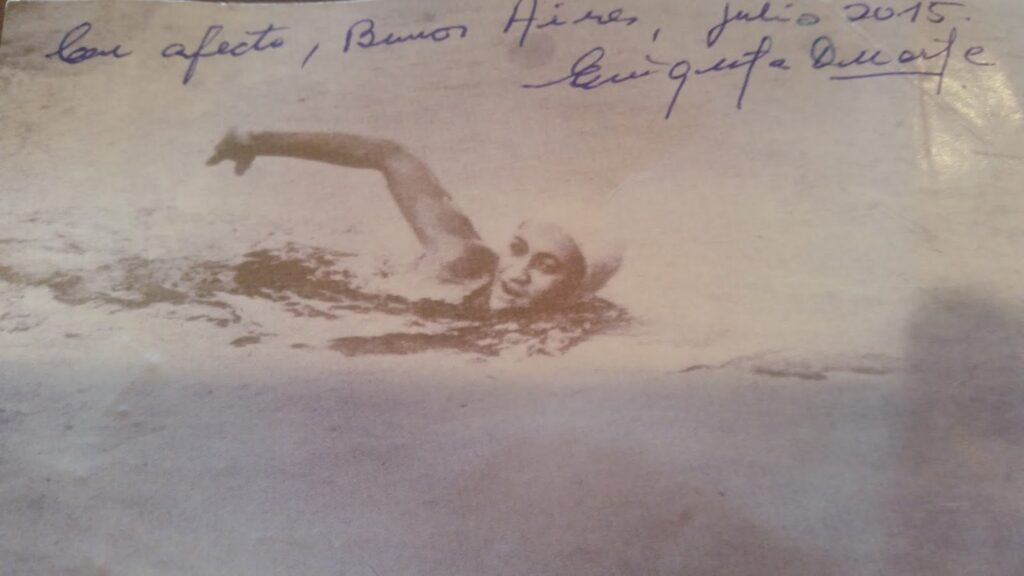 Con afecto, Buenos Aires, julio 2015.
Enriqueta Duarte